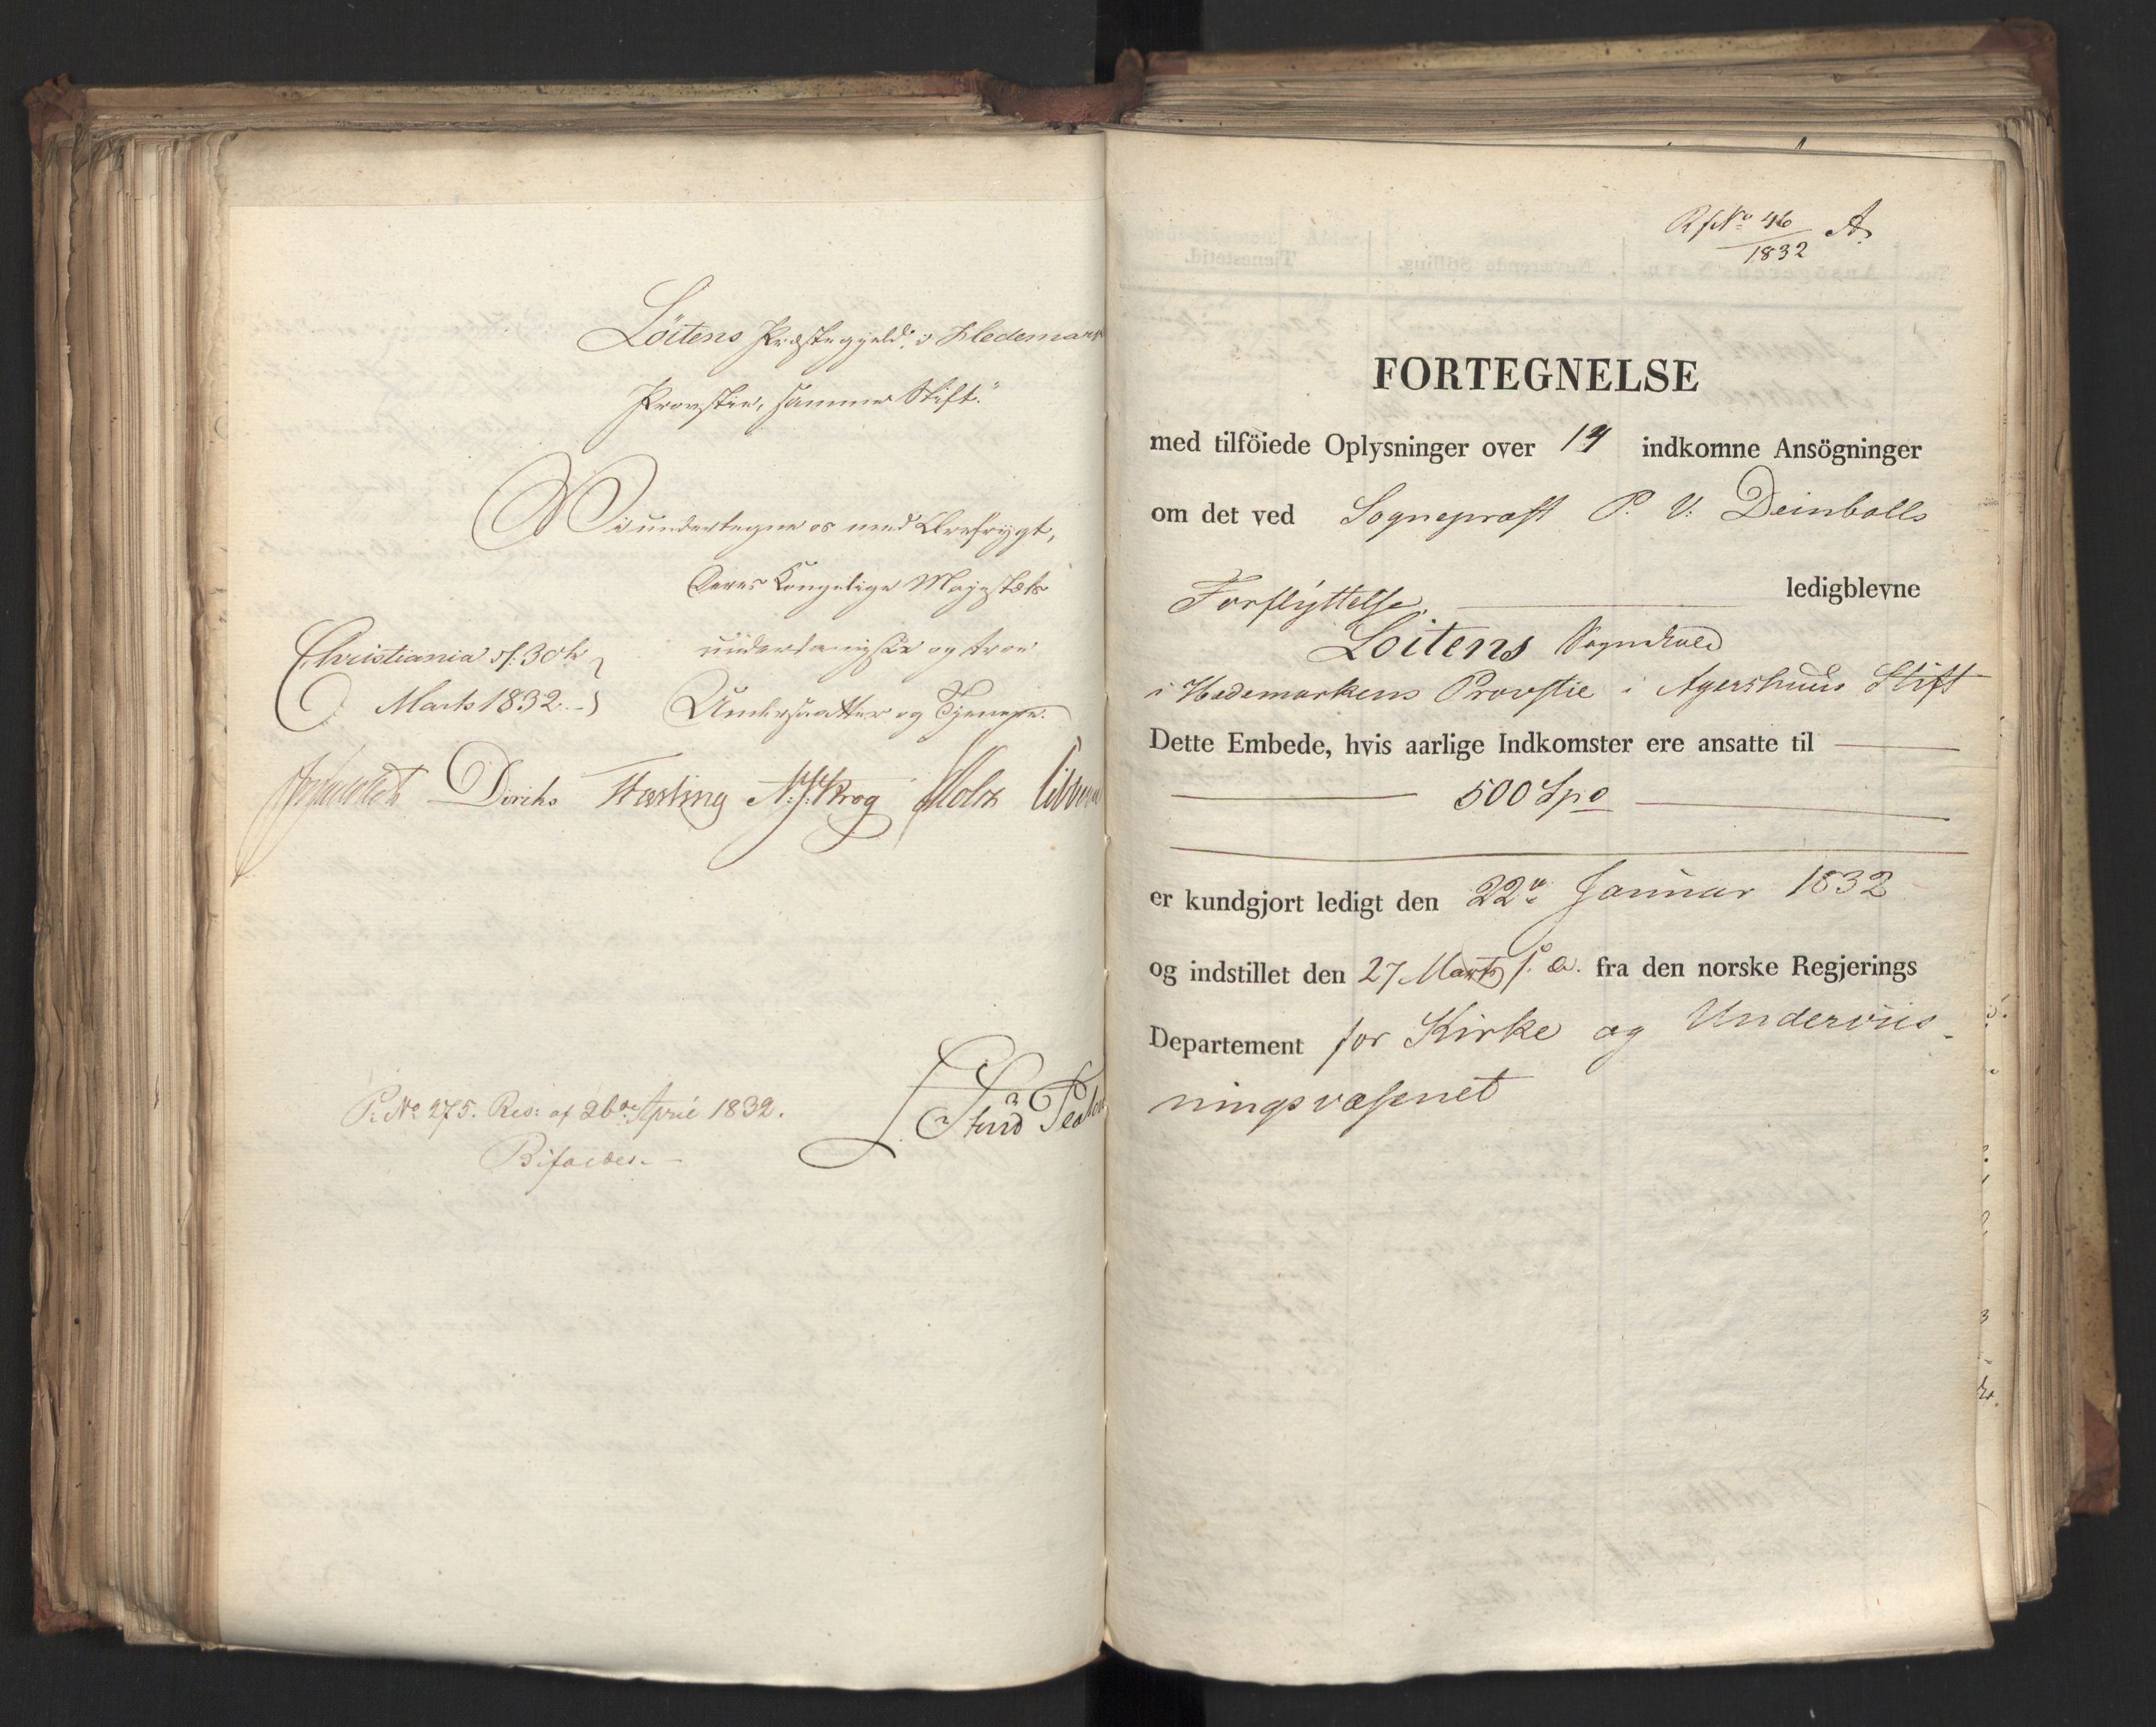 Löitens Præstegjeld i Hedemark
Provstie, samme Stift."
Vi undertegne os med Ærefrygt,
Deres Kongelige Majestæts
Christiania d: 30te
underdanigste og troe
Marts 1832.
Undersaatter og Tjenere.
Diriks N: J: Krog Holst
P: No 275. Res: af 26de April 1832.
Bifaldes.
RfNo 46 A.
1832
FORTEGNELSE
med tilföiede Oplysninger over 14 indkomne Ansögninger
om det ved Sognepræst P. V: Deinbolls
Forflyttelse. ledigblevne
Loitens Sognekald
i Hedemarkens Provstie i Agershuus Stift
Dette Embede, hvis aarlige Indkomster ere ansatte til
500 Spd
er kundgjort ledigt den 22de Januar 1832
og indstillet den 27 Marts s. a. fra den norske Regjerings
Departement for Kirke og Underviis-
ningsvæsenet